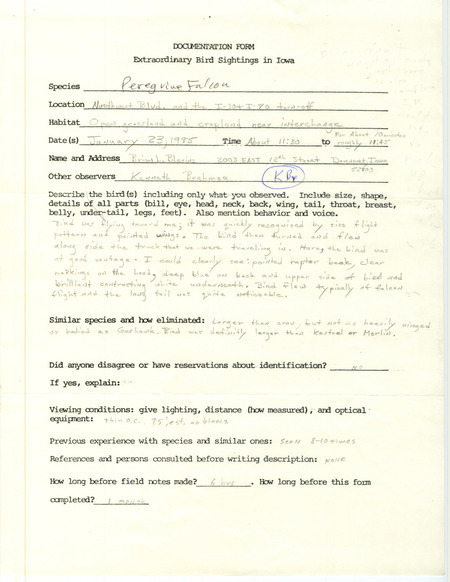 DOCUMENTATION FORM
Extraordinary Bird Sightings in Iowa
Species Peregrine Falcon
Location Northwest Blvd. and the I-80 turn-off
Habitat Open grassland and cropland near interchange
Date(s) January 23, 1985 Time About 11:30 to roughly 11:45
For About
Name and Address Brian Blevins 2003 EAST 12th Street Davenport, Iowa
52803
Other observers Kenneth KBr
Describe the bird(s) including only what you observed. Include size, shape,
details of all parts (bill, eye, head, neck, back, wing, tail, throat, breast,
belly, under-tail, legs, feet). Also mention behavior and voice.
Bird was flying toward me; it was quickly recognized by size flight
pattern and pointed wings. The bird then turned and flew
along side the truck that we were traveling in. Here, the bird was
at good vantage. I could clearly see: pointed raptor beak, clear
markings on the head, deep blue on back and upper side of bird and
brilliant contrasting white underneath. Bird flew typically of falcon
flight and the long tail was quite noticeable.
Similar species and how eliminated: Larger than crow, but not as heavily winged
or bodied as Goshawk. Bird was definitly larger than Kestrel or Merlin.
Did anyone disagree or have reservations about identification? NO
If yes, explain:
Viewing conditions: give lighting, distance (how measured), and optical
equipment: 75' est. no binocs
Previous experience with species and similar ones: seen 8-10 times
References and persons consulted before writing description: NONE
How long before field notes made? 6 hrs. How long before this form
completed? 1 month